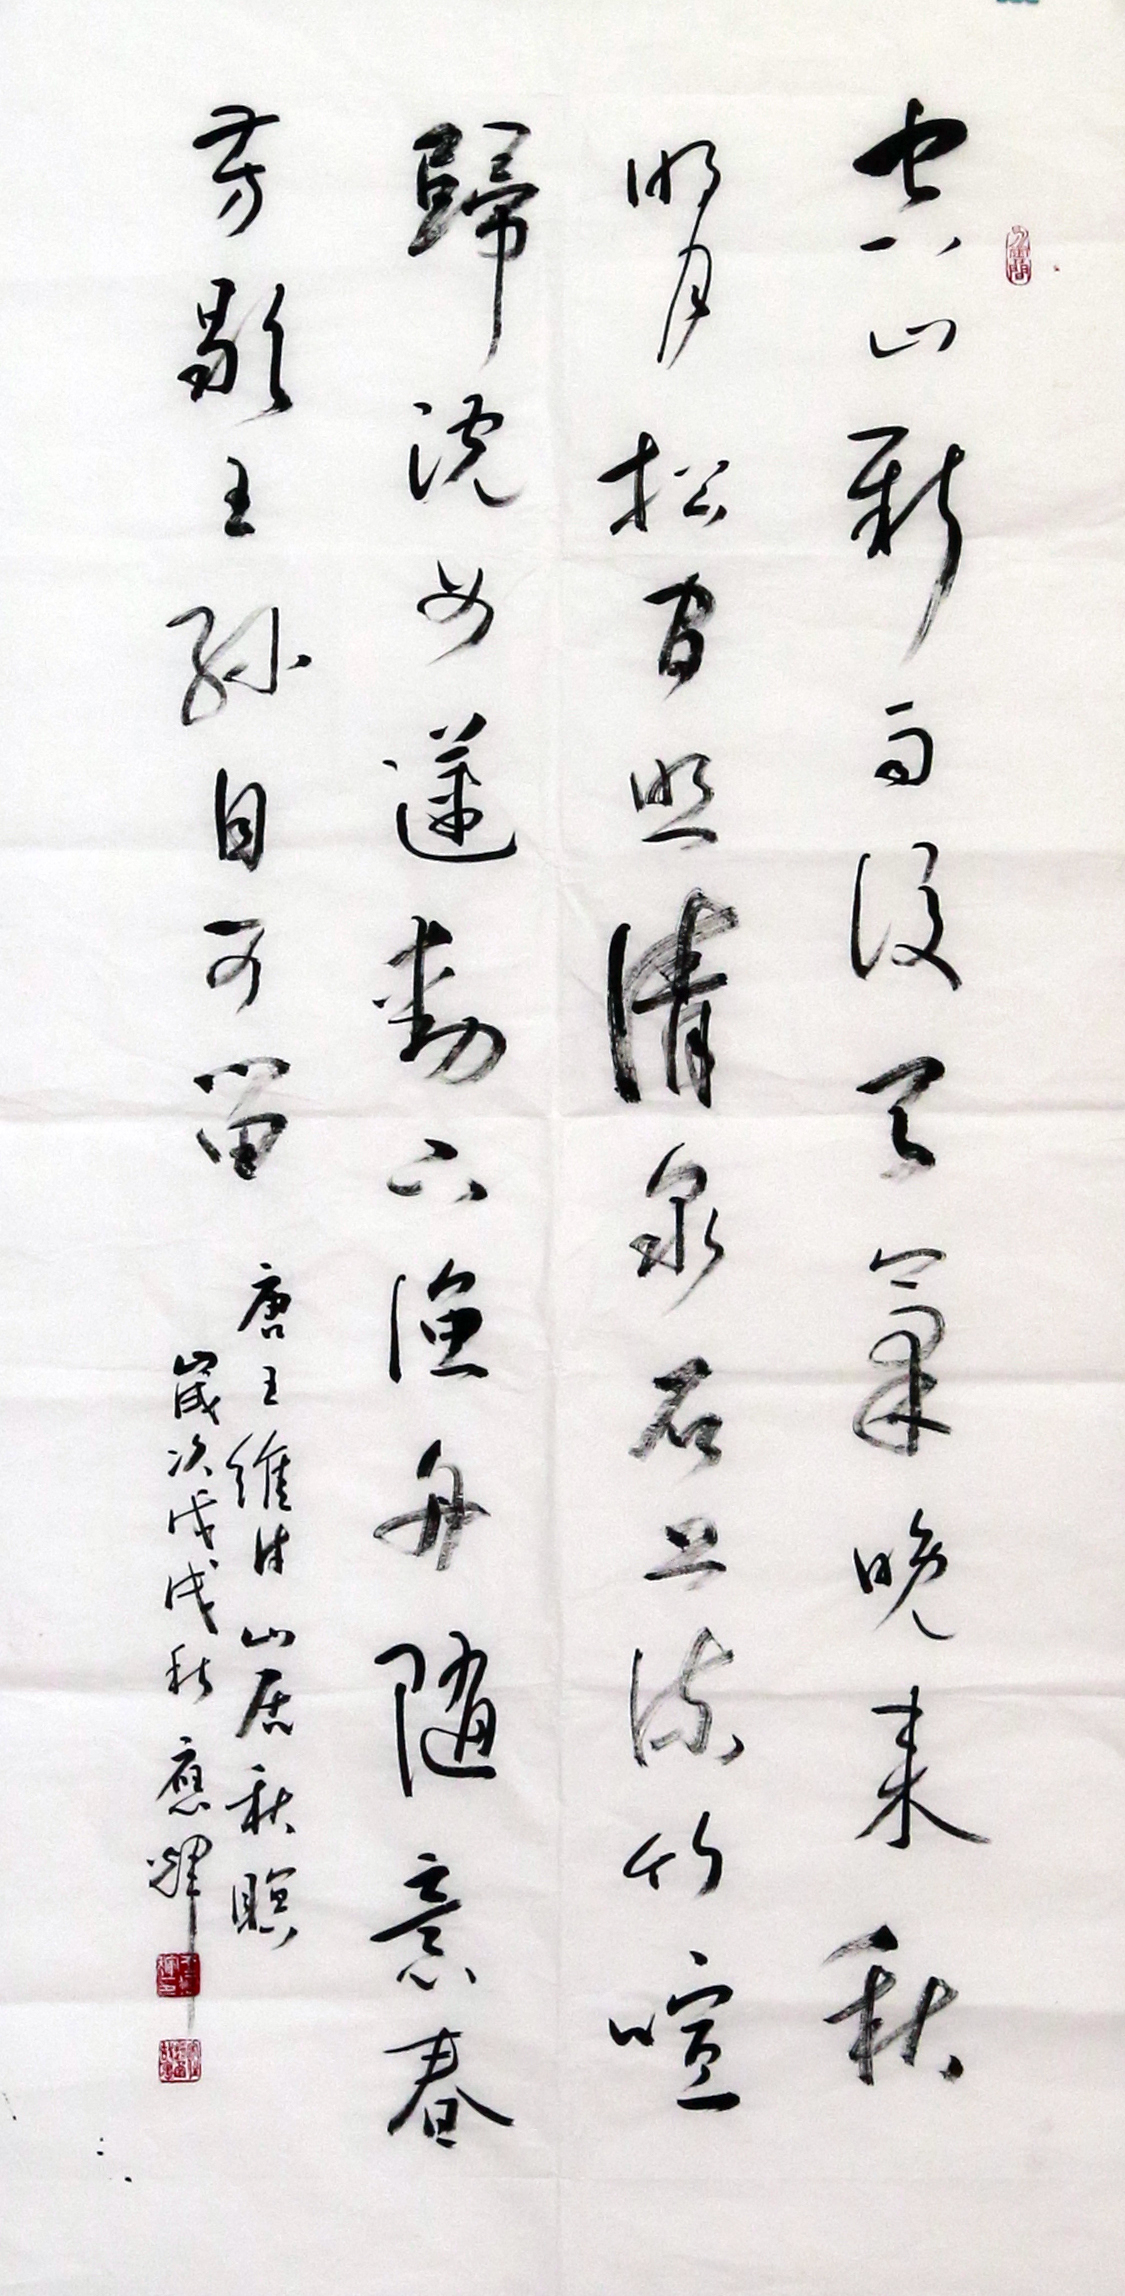 空山新雨後天氣晚來秋
明月松間照清泉石上流竹喧
歸浣女蓮動下漁舟隨意春
芳歇王孫自可留
唐王維詩山居秋暝
歲次戊戌秋應輝